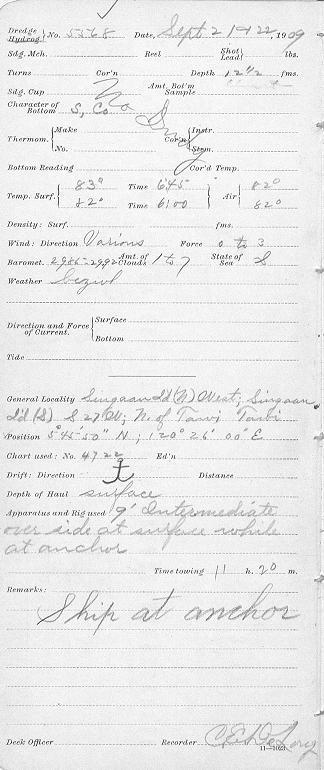 Dredge Hydrog. No. 5568 Date, Sept 21 + 22, 1909
Sdg. Mch. Reel Shot Lead lbs.
Turns Cor'n Depth 12 1/2 fms.
Sdg. Cup Amt. Bot'm Sample
Character of Bottom S, Co
No
Thermom. Make No. Cor'n Instr. Stem.
Bottom Reading Cor'd Temp.
Temp. Surf. 83° Time 6:45 Air 82°
82° Time 6:00 82°
Density: Surf. fms.
Wind: Direction Various Force 0 to 3
Baromet. 2986-2992 Amt. of Clouds 1 to 7 State of Sea S
Weather
Direction and Force of Current. Surface
Bottom
Tide
General Locality Singaan Id (N) West; Singaan
Id (S) S 27 W; N. of Tawi Tawi
Position 5° 45' 50" N; 120° 26' 00" E
Chart used: No. 4722 Ed'n
Drift: Direction Distance
Depth of Haul surface
Apparatus and Rig used 9' Intermediate
over side at surface while
at anchor
Time towing 11 h. 20 m.
Remarks:
Ship at anchor
Deck Officer Recorder
11—1023